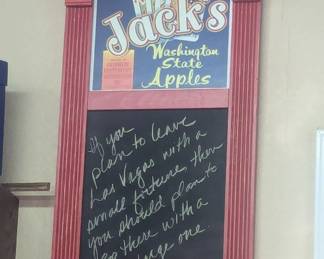 Jack's
Washington
State
Apples
If you
plan to leave
Las Vegas with a
small fortune then
you should plan to
go there with a
large one...